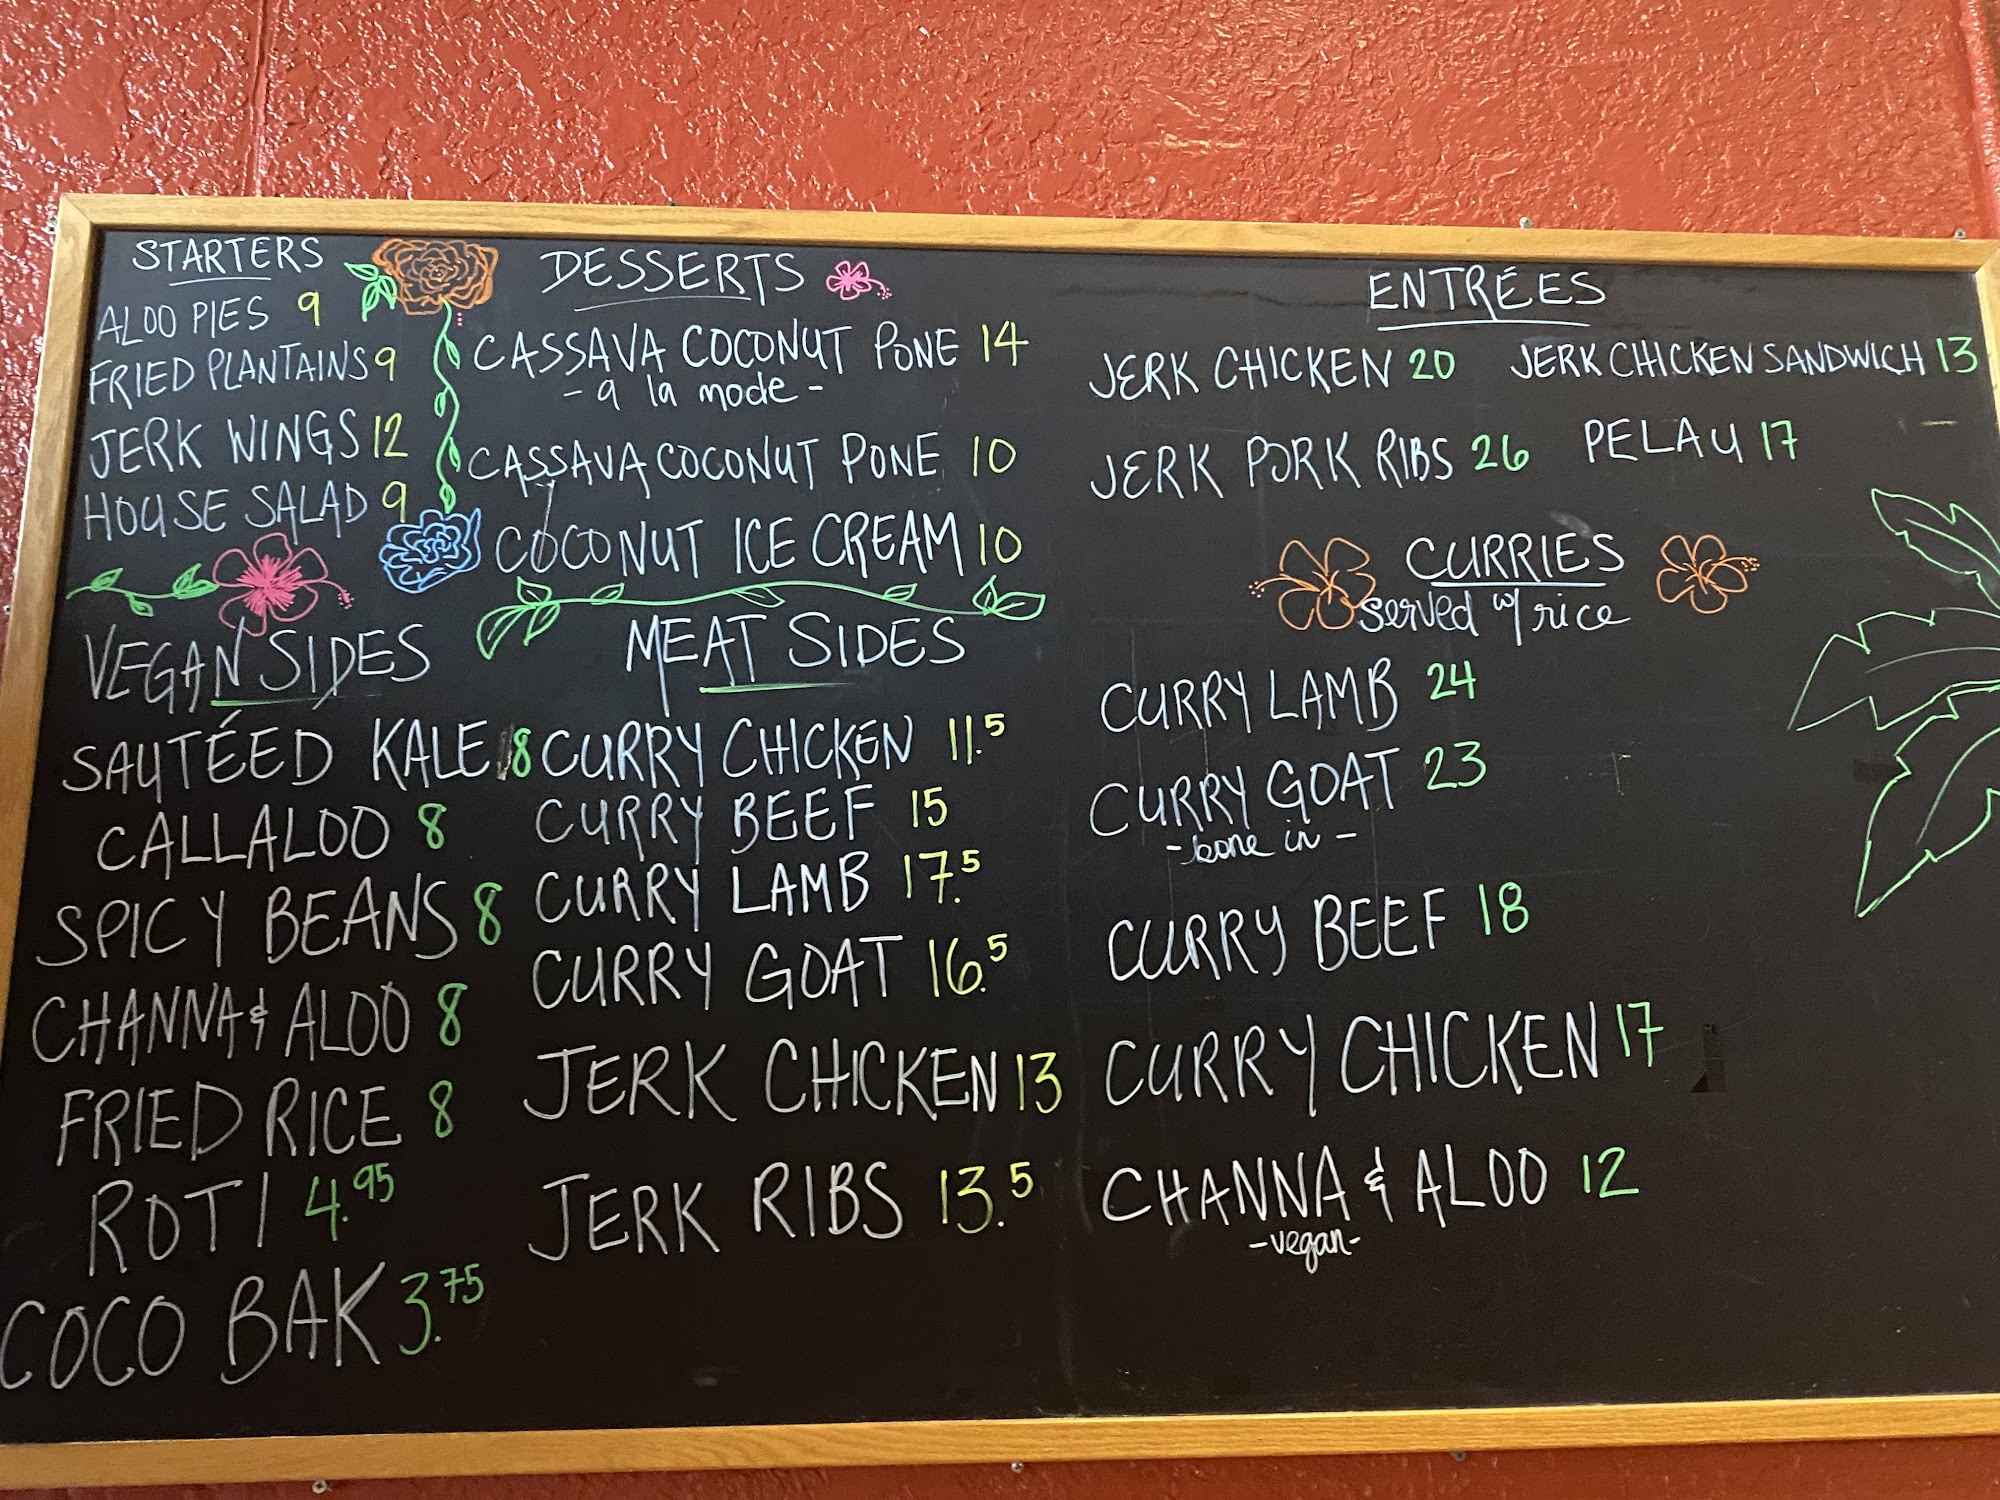 STARTERS
ALOO PIES 9
FRIED PLANTAINS 9
JERK WINGS 12
HOUSE SALAD 9
DESSERTS
CASSAVA COCONUT PONE 14
- a la mode -
CASSAVA COCONUT PONE 10
COCONUT ICE CREAM 10
VEGAN SIDES
SAUTÉED KALE 8
CALLALOO 8
SPICY BEANS 8
CHANNA & ALOO 8
FRIED RICE 8
ROTI 4.95
COCO BAK 3.75
MEAT SIDES
CURRY CHICKEN 11.5
CURRY BEEF 15
CURRY LAMB 17.5
CURRY GOAT 16.5
JERK CHICKEN 13
JERK RIBS 13.5
ENTRÉES
JERK CHICKEN 20 JERK CHICKEN SANDWICH 13
JERK PORK RIBS 26 PELAU 17
CURRIES
served w/ rice
CURRY LAMB 24
CURRY GOAT 23
- bone in -
CURRY BEEF 18
CURRY CHICKEN 17
CHANNA & ALOO 12
- vegan -